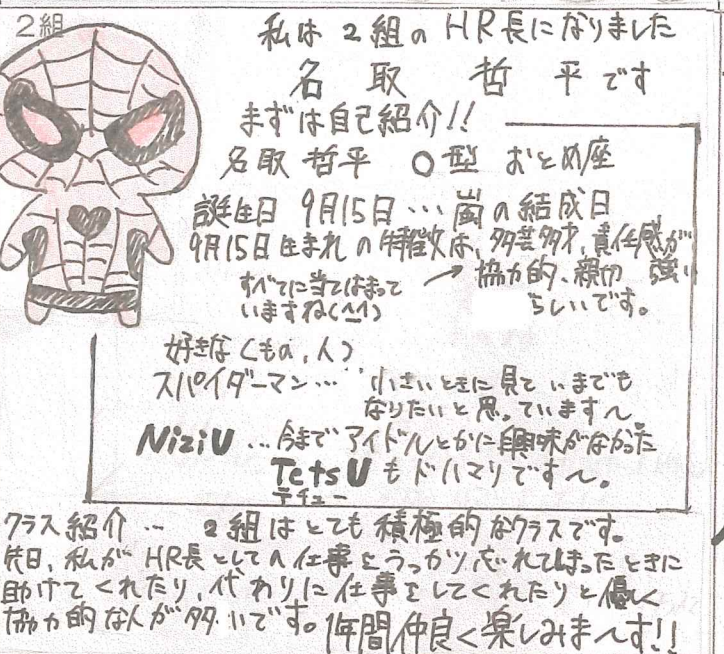 2組
私は2組のHR長になりました
名取 哲平です
まずは自己紹介!!
名取哲平 O型 おとめ座
誕生日 9月15日…嵐の結成日
9月15日生まれの特徴は、多芸多才、責任感が強い
協力的、親切
らしいです。
すべてに当てはまって
いますね(^^)
好きな(もの、人)
スパイダーマン… 小さいときに見ていまでも
なりたいと思っています〜
NiziU…今までアイドルとかに興味がなかった
TetsUもドハマりです〜。
テチュー
クラス紹介… 2組はとても積極的なクラスです。
先日、私がHR長としての仕事をうっかり忘れてしまったときに
助けてくれたり、代わりに仕事をしてくれたりと優しく
協力的な人が多いです。1年間仲良く楽しみま〜す!!